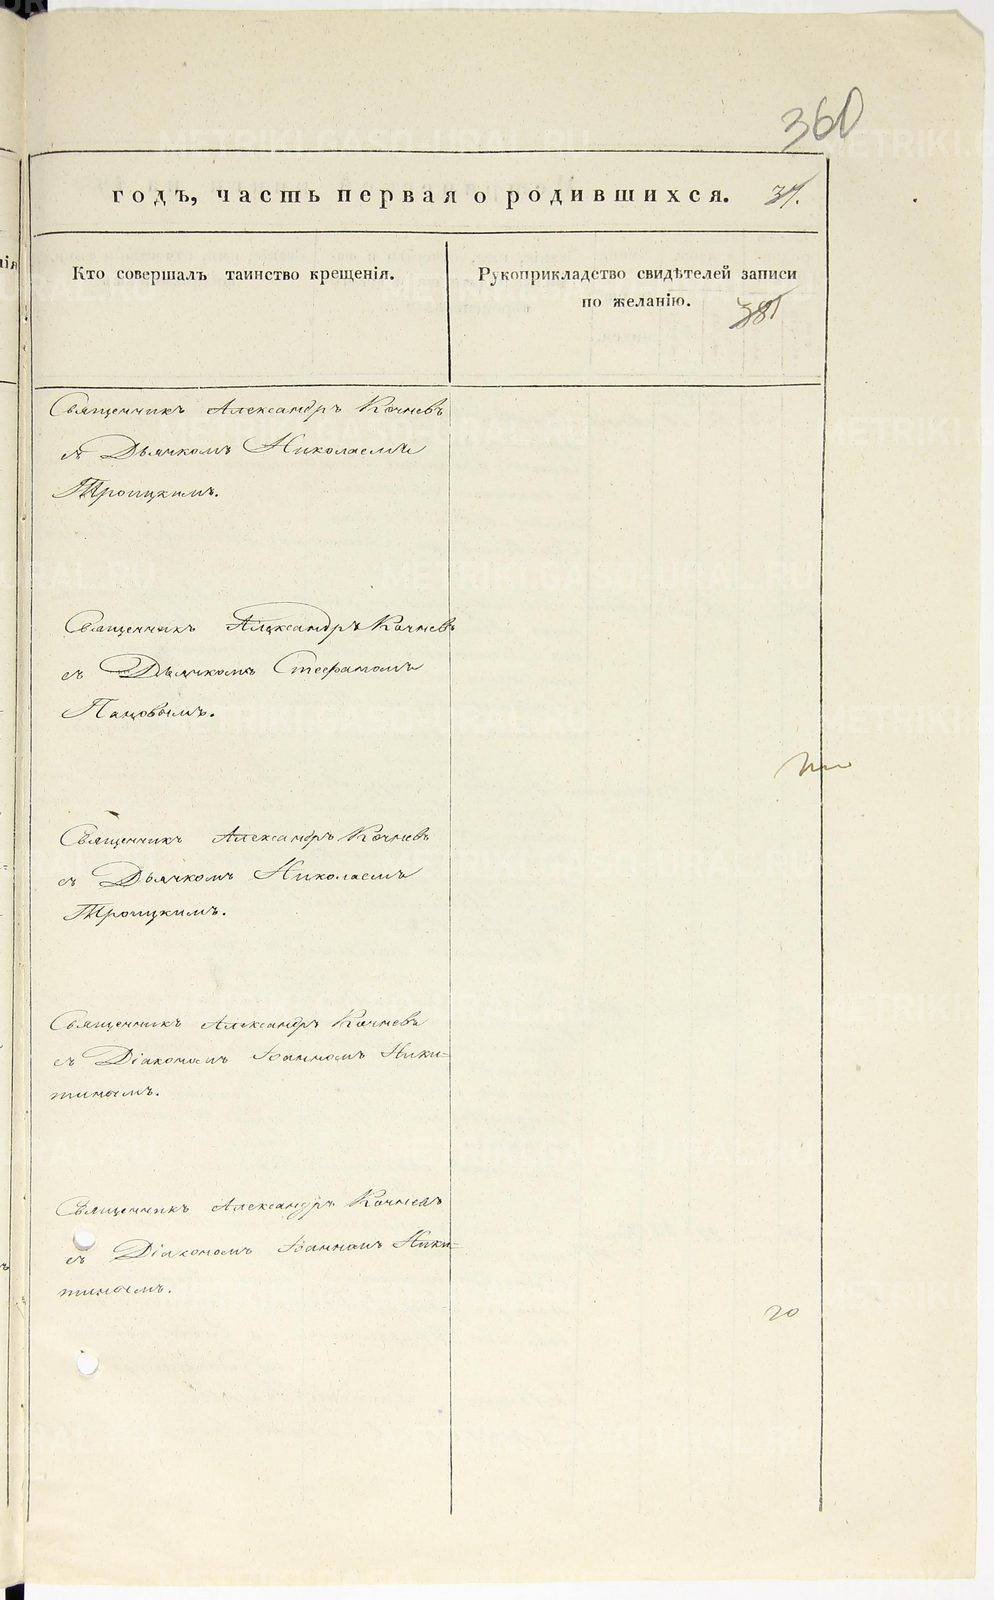 360
годъ, часть первая о родившихся. 37.
Кто совершалъ таинство крещенія.
Рукоприкладство свидѣтелей записи
по желанію.
381
Священникъ Александръ Кочневъ
съ Дьячкомъ Николаемъ
Троицкимъ.
Священникъ Александръ Кочневъ
съ Дьячкомъ Стефаномъ
Пановымъ.
Священникъ Александръ Кочневъ
съ Дьячкомъ Николаемъ
Троицкимъ.
Священникъ Александръ Кочневъ
съ Діакономъ Іоанномъ Ники=
тинымъ.
Священникъ Александръ Кочневъ
съ Діакономъ Іоанномъ Ники=
тинымъ.
20
METRIKI.GASO-URAL.RU